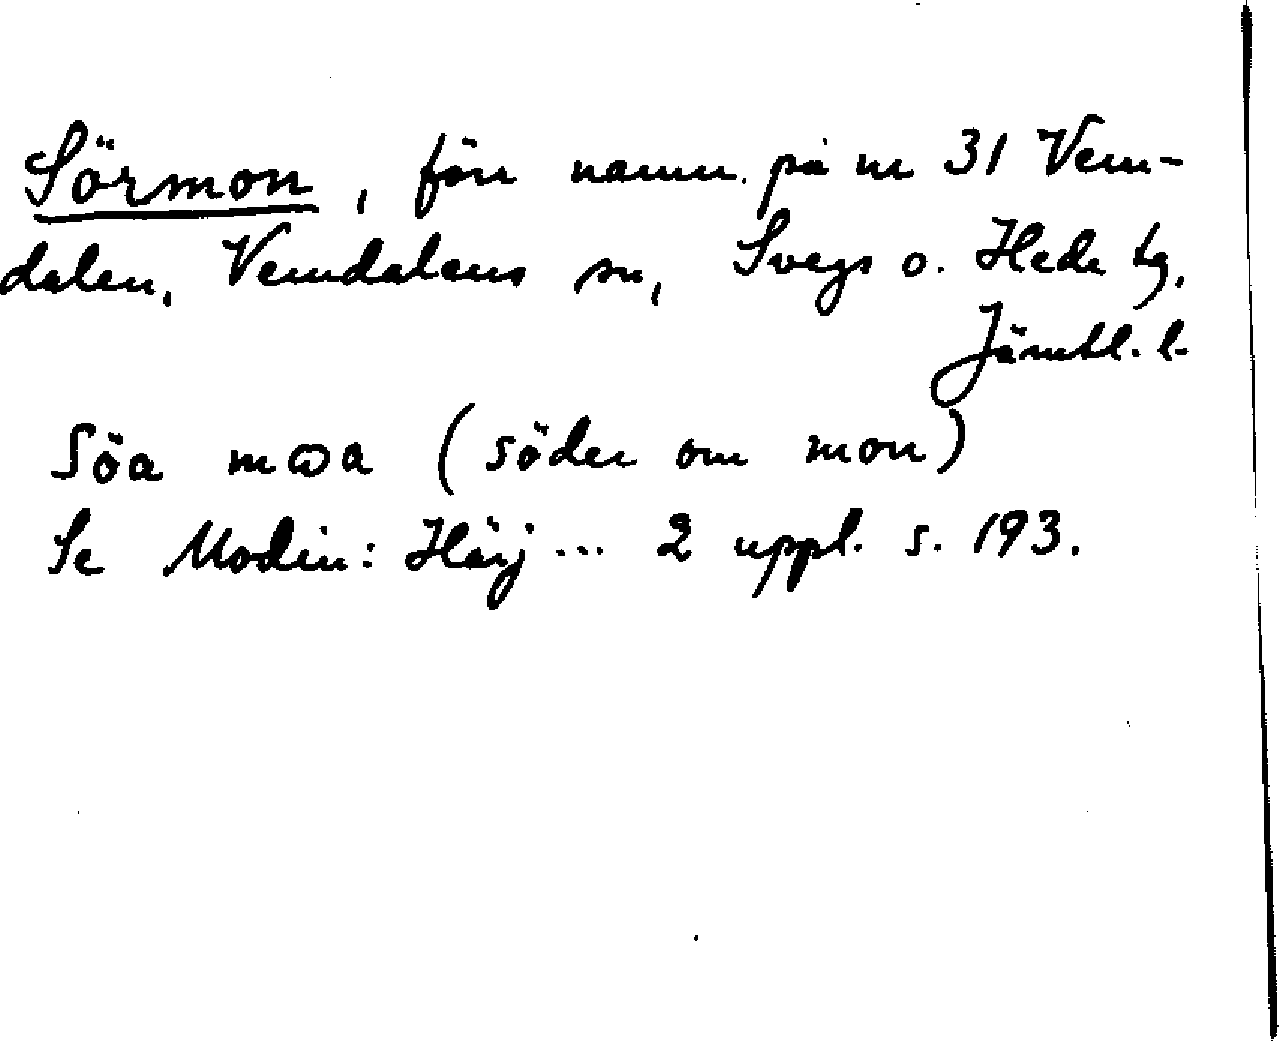 Sörmon, förr namn på nr 31 Vem-
dalen, Vemdalens sn, Svegs o. Hede tg.
Jämtl. l.
Söa mɷa (söder om mon)
Se Modin: Härj ... 2 uppl. s. 193.